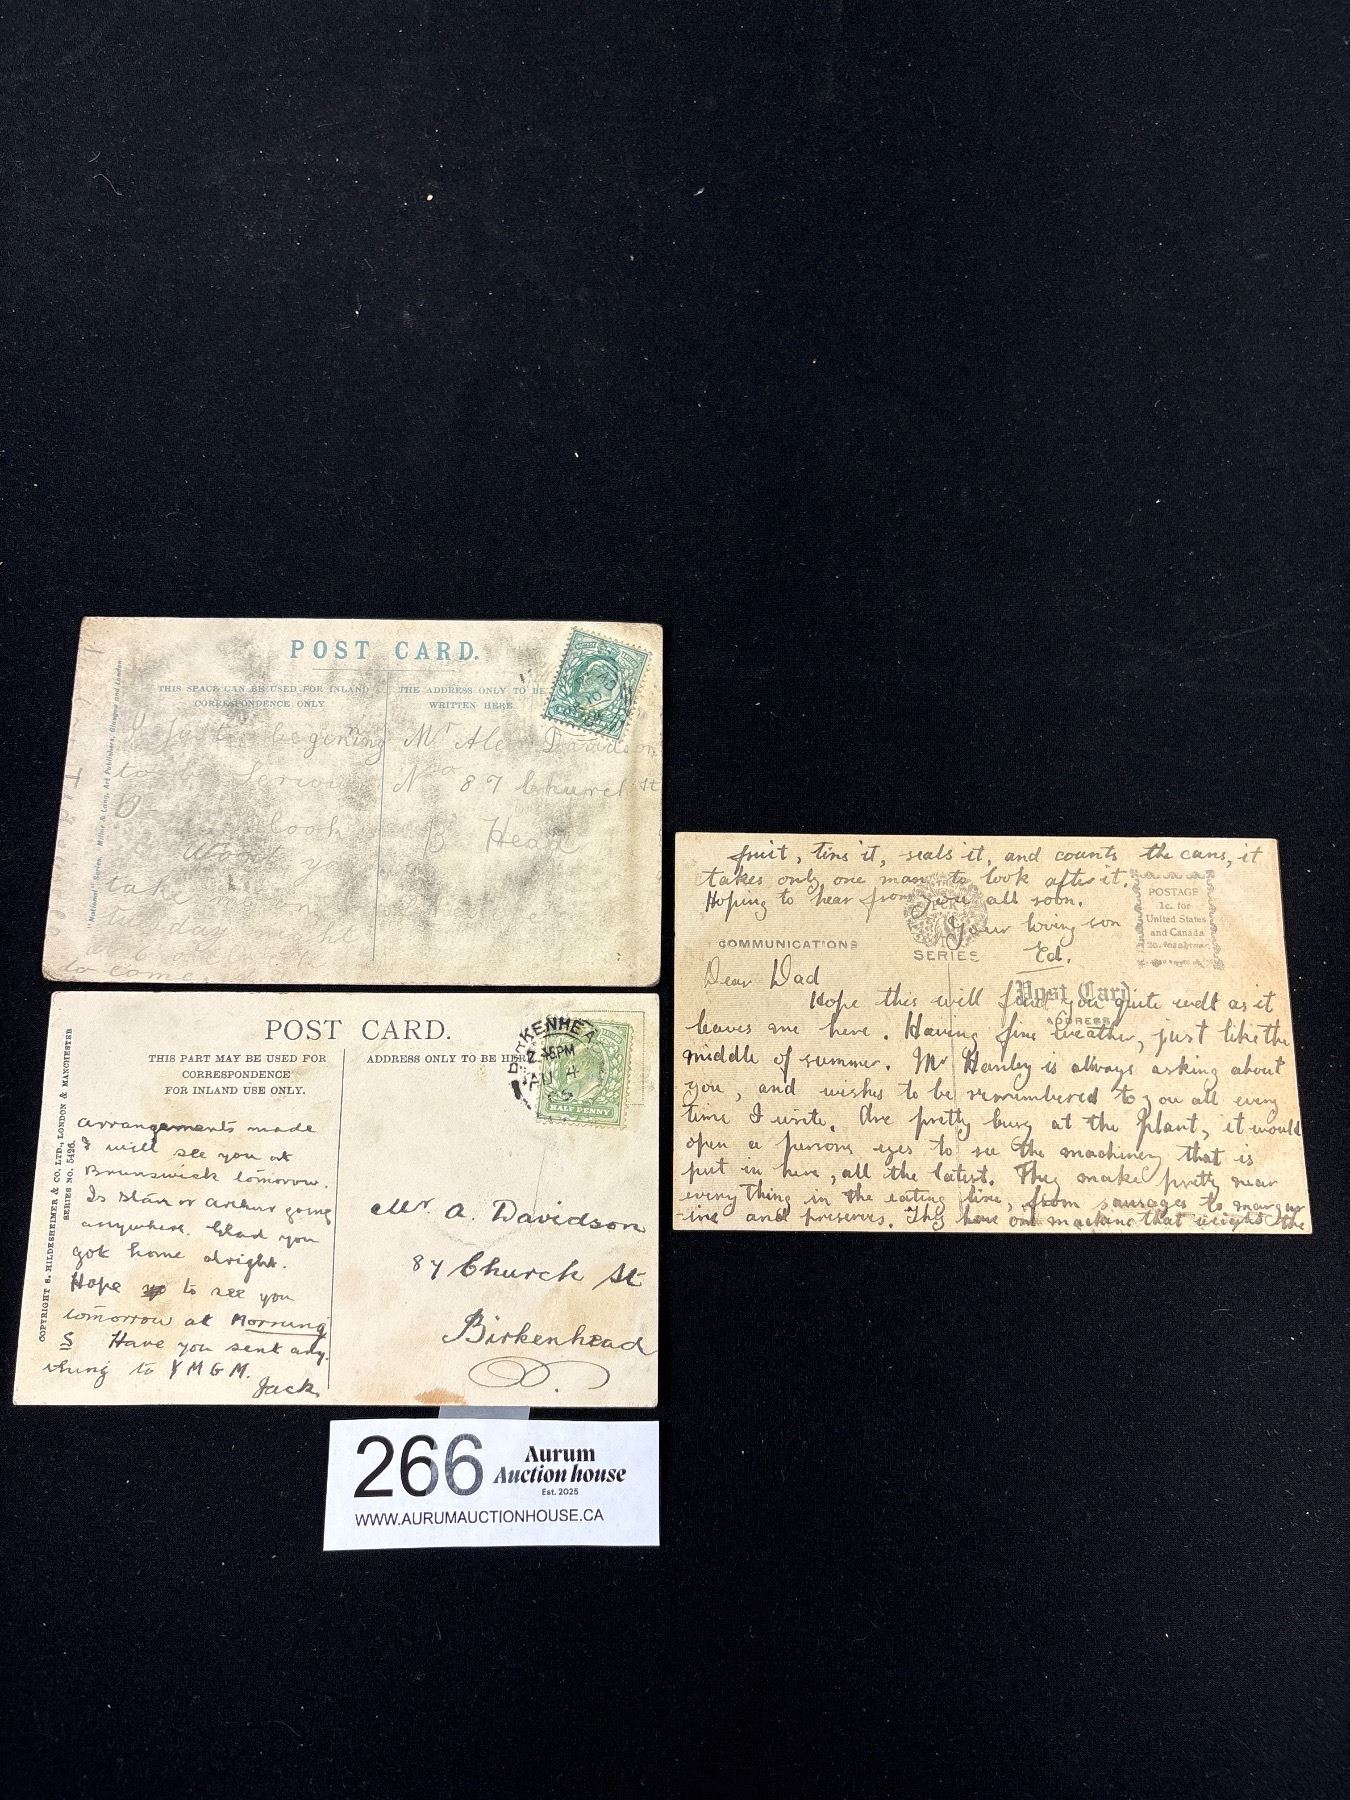 POST CARD.
THIS SPACE CAN BE USED FOR INLAND
CORRESPONDENCE ONLY
THE ADDRESS ONLY TO BE
WRITTEN HERE
"National" Series. Millar & Lang, Art Publishers, Glasgow and London
I just begining
to be
look
Wont
take
tuesday night
to come
Mr Alex Davidson
No 87 Church St
B Head
POST CARD.
THIS PART MAY BE USED FOR
CORRESPONDENCE
FOR INLAND USE ONLY.
ADDRESS ONLY TO BE HERE
COPYRIGHT S. HILDESHEIMER & CO. LTD., LONDON & MANCHESTER
SERIES NO. 5426.
BIRKENHEA
2.45PM
4
HALF PENNY
arrangements made
I will see you at
Brunswick tomorrow.
Is Stan or Arthur going
anywhere. Glad you
got home alright.
Hope to see you
tomorrow at Morning
Have you sent any-
thing to Y M G M.
Jack.
Mr. A. Davidson
87 Church St
Birkenhead
fruit, tins it, seals it, and counts the cans, it
takes only one man to look after it.
Hoping to hear from you all soon.
Your loving son
Ed.
SERIES
POSTAGE
1c. for
United States
and Canada
COMMUNICATIONS
Post Card
ADDRESS
Dear Dad
Hope this will find you quite well as it
leaves me here. Having fine weather, just like the
middle of summer. Mr Hanley is always asking about
you, and wishes to be remembered to you all every
time I write. Are pretty busy at the Plant, it would
open a persons eyes to see the machinery that is
put in here, all the latest. They make pretty near
every thing in the eating line, from sausages to margar
-ine and preserves. They have one machine that weighs the
266
Aurum
Auction house
Est. 2025
WWW.AURUMAUCTIONHOUSE.CA